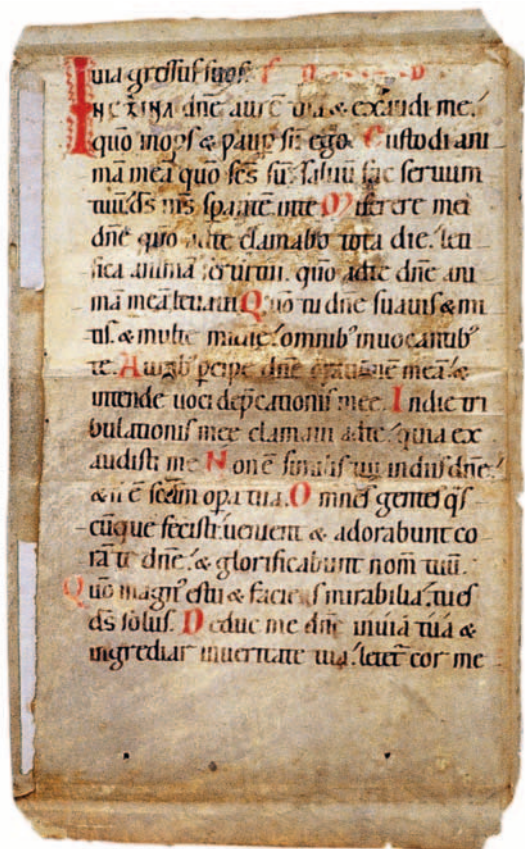 uia gressus suos.
INCLINA dnē aurē tuā & exaudi me.
quō inops & paup sū ego. Custodi ani
mā meā quō scs sū. saluū fac seruum
tuū ds ms sparte inte Miserere mei
dnē quō adte clamabo tota die. leti
fica animā serui tui. quō adte dnē ani
mā meā leuaui Quō tu dnē suauis & mi
tis. & multe mīdie omnibꝰ inuocantibꝰ
te. Auribꝰ pcipe dnē orationē meā. &
intende uoci dep̄cationis mee. Indie tri
bulationis mee clamaui adte. quia ex
audisti me Non ē similis tui indiis dnē.
& n ē scdm opa tua. Omnes gentes qs
cūque fecisti. uenient & adorabunt co
rā te dnē. & glorificabunt nom̄ tuū.
Quō magnꝰ es tu & faciens mirabilia. tu es
ds solus. Deduc me dnē inuia tua &
ingrediar inueritate tua. letet cor me